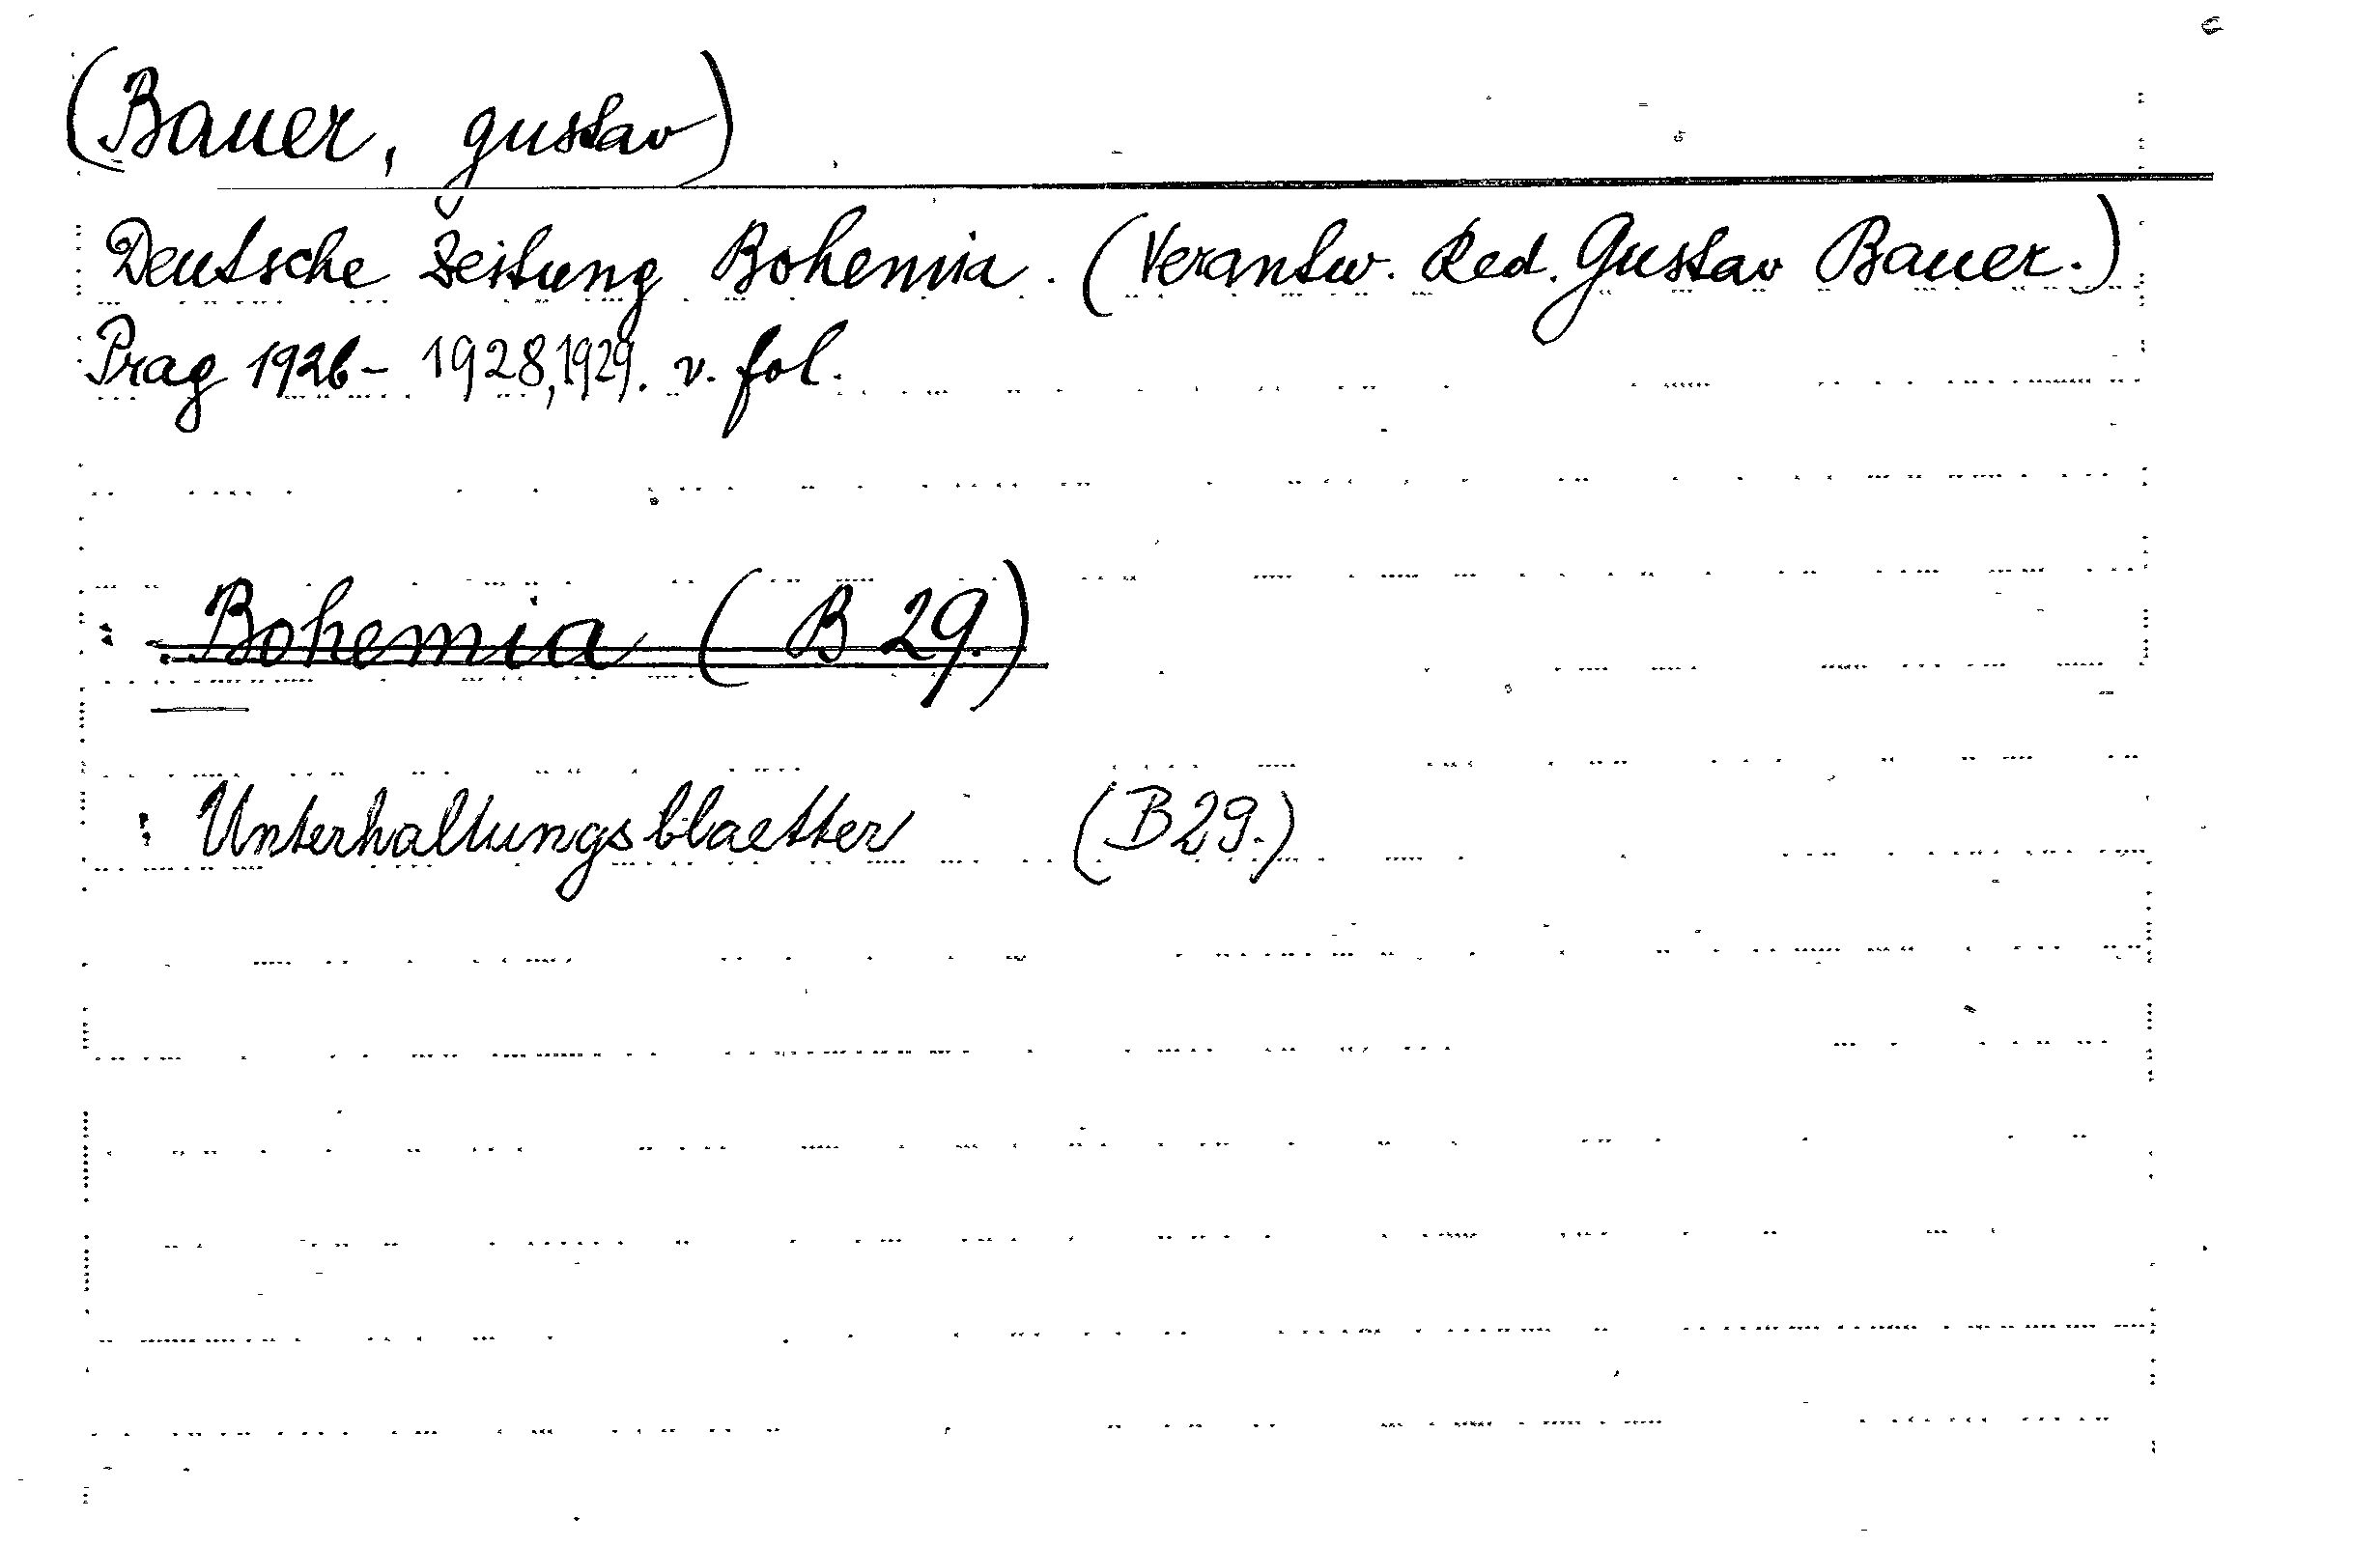 (Bauer, Gustav)
Deutsche Zeitung Bohemia. (Verantw. Red. Gustav Bauer.)
Prag 1926-1928, 1929. v. fol.
: Bohemia (B 29.)
: Unterhaltungsblaetter (B29.)